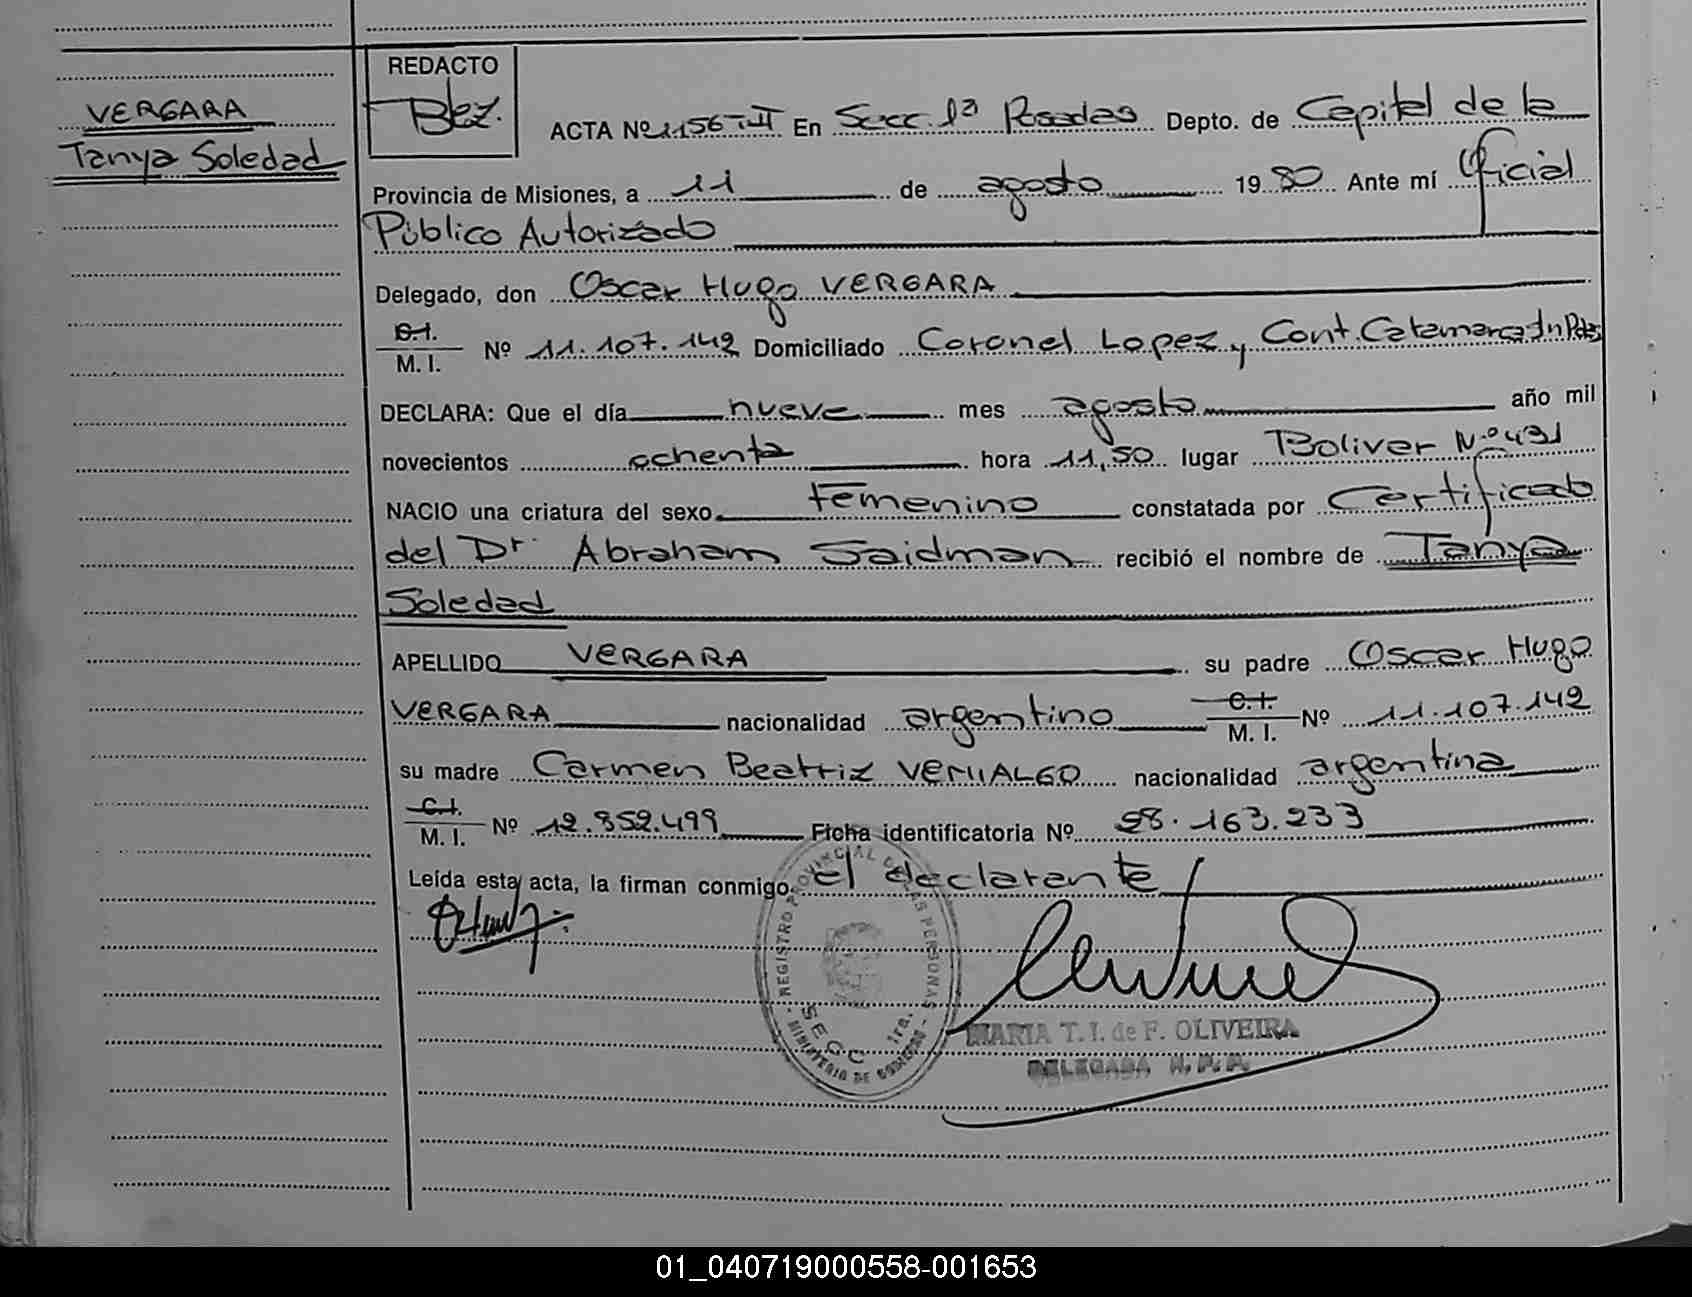 REDACTO
VERGARA
Tanya Soledad
ACTA Nº 1156-II En Secc. 1ª Posadas Depto. de Capital de la
Provincia de Misiones, a 11 de agosto 1980 Ante mí Oficial
Público Autorizado
Delegado, don Oscar Hugo VERGARA
C.I.
M. I. Nº 11.107.142 Domiciliado Coronel Lopez y Cont. Catamarca
DECLARA: Que el día nueve mes agosto año mil
novecientos ochenta hora 11,50 lugar Bolivar N.º 431
NACIO una criatura del sexo femenino constatada por Certificado
del Dr. Abraham Saidman recibió el nombre de Tanya
Soledad
APELLIDO VERGARA su padre Oscar Hugo
VERGARA nacionalidad argentino C.I. M. I. Nº 11.107.142
su madre Carmen Beatriz VENIALGO nacionalidad argentina
C.I.
M. I. Nº 12.852.499 Ficha identificatoria Nº 28.163.233
Leída esta acta, la firman conmigo el declarante
REGISTRO PROVINCIAL DE LAS PERSONAS
SECC 1ra.
MINISTERIO DE GOBIERNO
MARIA T. I. de F. OLIVEIRA
DELEGADA R. P. P.
01_040719000558-001653